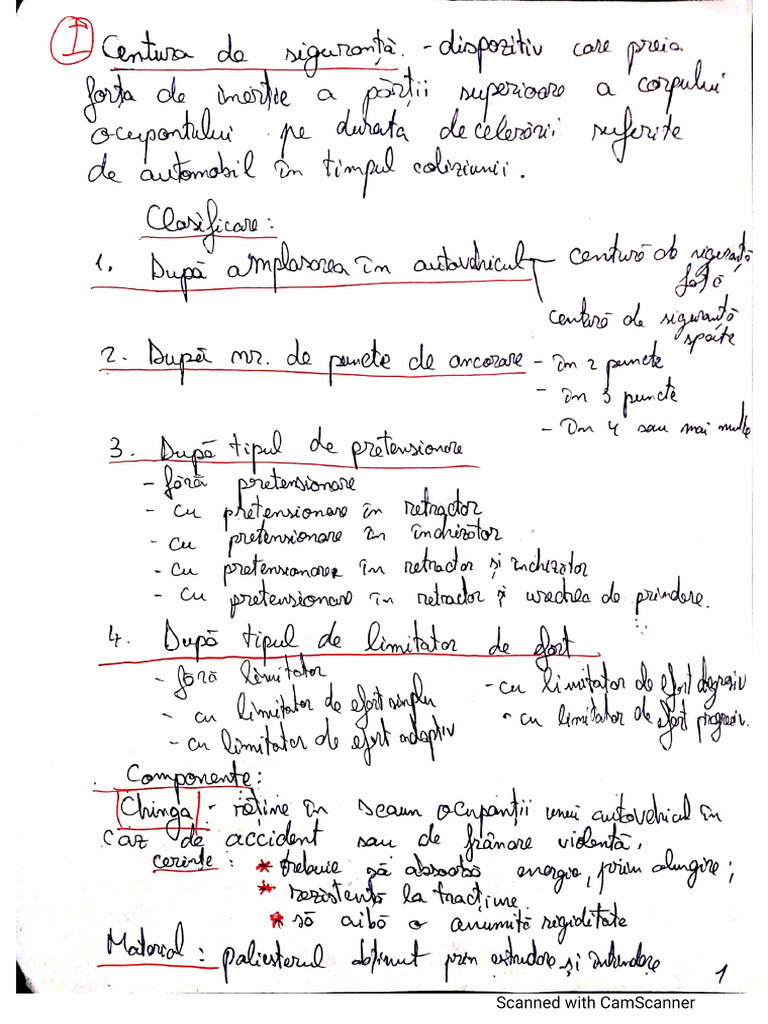 I Centura de siguranță. - dispozitiv care preia
forța de inerție a părții superioare a corpului
ocupantului pe durata decelerării suferite
de automobil în timpul coliziunii.
Clasificare:
1. După amplasarea în autovehicul - centură de siguranță
față
centură de siguranță
spate
2. După nr. de puncte de ancorare - în 2 puncte
- în 3 puncte
- în 4 sau mai multe
3. După tipul de pretensionare
- fără pretensionare
- cu pretensionare în retractor
- cu pretensionare în închizător
- cu pretensionare în retractor și închizător
- cu pretensionare în retractor și urechea de prindere.
4. După tipul de limitator de efort
- fără limitator
- cu limitator de efort simplu
- cu limitator de efort adaptiv
- cu limitator de efort degresiv
- cu limitator de efort progresiv.
Componente:
Chinga - reține în scaun ocupanții unui autovehicul în
caz de accident sau de frânare violentă.
cerințe: * trebuie să absoarbă energie, prin alungire;
* rezistență la tracțiune
* să aibă o anumită rigiditate
Material: poliesterul obținut prin extrudare și întindere
1
Scanned with CamScanner